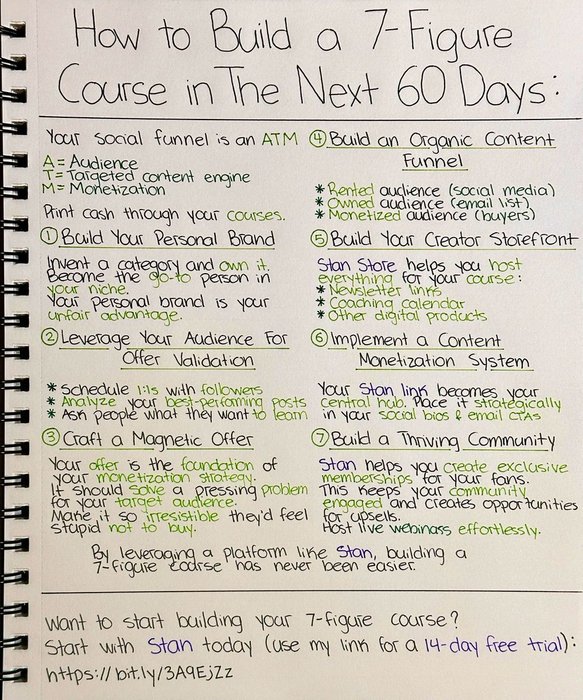 How to Build a 7-Figure
Course in The Next 60 Days:
Your social funnel is an ATM
A = Audience
T = Targeted content engine
M = Monetization
Print cash through your courses.
① Build Your Personal Brand
Invent a category and own it.
Become the go-to person in
your niche.
Your personal brand is your
unfair advantage.
② Leverage Your Audience For
Offer Validation
* Schedule 1:1s with followers
* Analyze your best-performing posts
* Ask people what they want to learn
③ Craft a Magnetic Offer
Your offer is the foundation of
your monetization strategy.
It should solve a pressing problem
for your target audience.
Make it so irresistible they'd feel
stupid not to buy.
④ Build an Organic Content
Funnel
* Rented audience (social media)
* Owned audience (email list)
* Monetized audience (buyers)
⑤ Build Your Creator Storefront
Stan Store helps you host
everything for your course:
* Newsletter links
* Coaching calendar
* Other digital products
⑥ Implement a Content
Monetization System
Your Stan link becomes your
central hub. Place it strategically
in your social bios & email CTAs
⑦ Build a Thriving Community
Stan helps you create exclusive
memberships for your fans.
This keeps your community
engaged and creates opportunities
for upsells.
Host live webinars effortlessly.
By leveraging a platform like Stan, building a
7-figure course has never been easier.
Want to start building your 7-figure course?
Start with Stan today (use my link for a 14-day free trial):
https://bit.ly/3A9EjZz